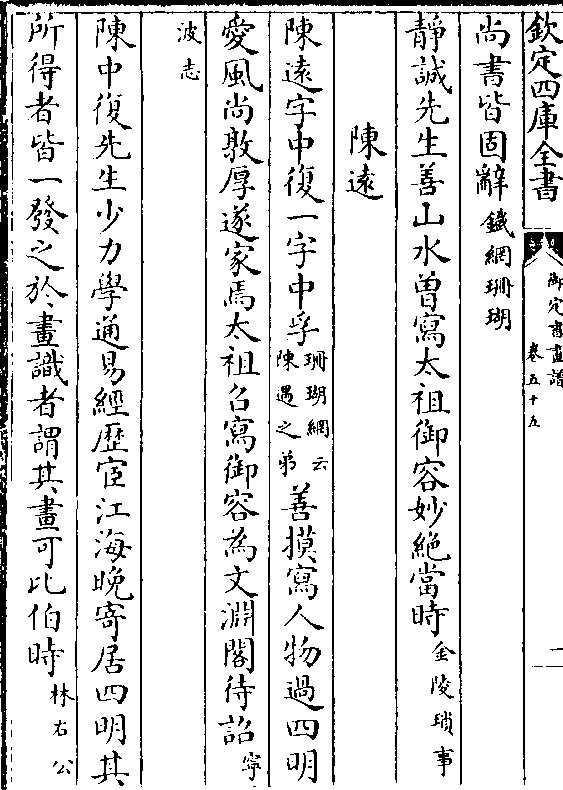 欽定四庫全書
御定書畫譜
卷五十五
二
尚書皆固辭鐵網珊瑚
靜誠先生善山水曽寫太祖御容妙絶當時金陵瑣事
陳遠
陳遠字中復一字中孚珊瑚網云陳遇之弟善摸寫人物過四明
愛風尚敦厚遂家焉太祖召寫御容為文淵閣待詔寧
波志
陳中復先生少力學通易經歴宦江海晚寄居四明其
所得者皆一發之於畫識者謂其畫可比伯時林右公